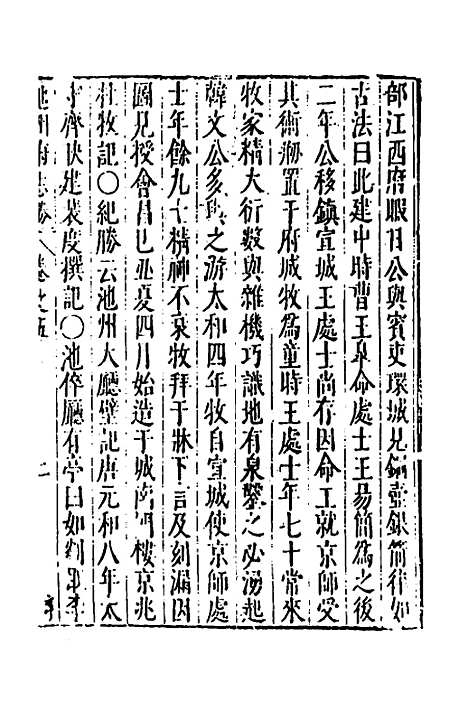 部江西府暇日公與賓吏環城見銅壺銀箭律如
古法曰此建中時曹王臯命處士王易簡為之後
二年公移鎮宣城王處士尚存因命工就京師受
其術剏置于府城牧為童時王處士年七十常來
牧家精大衍數與雜機巧識地有泉鑿之必湧起
韓文公多與之游太和四年牧自宣城使京師處
士年餘九十精神不衰牧拜于牀下言及刻漏因
圖見授會昌乙丑夏四月始造于城南門樓京兆
杜牧記○紀勝云池州大廳壁記唐元和八年太
守齊映建裴度撰記○池倅廳有亭曰如
池州府志勝 卷之五 二